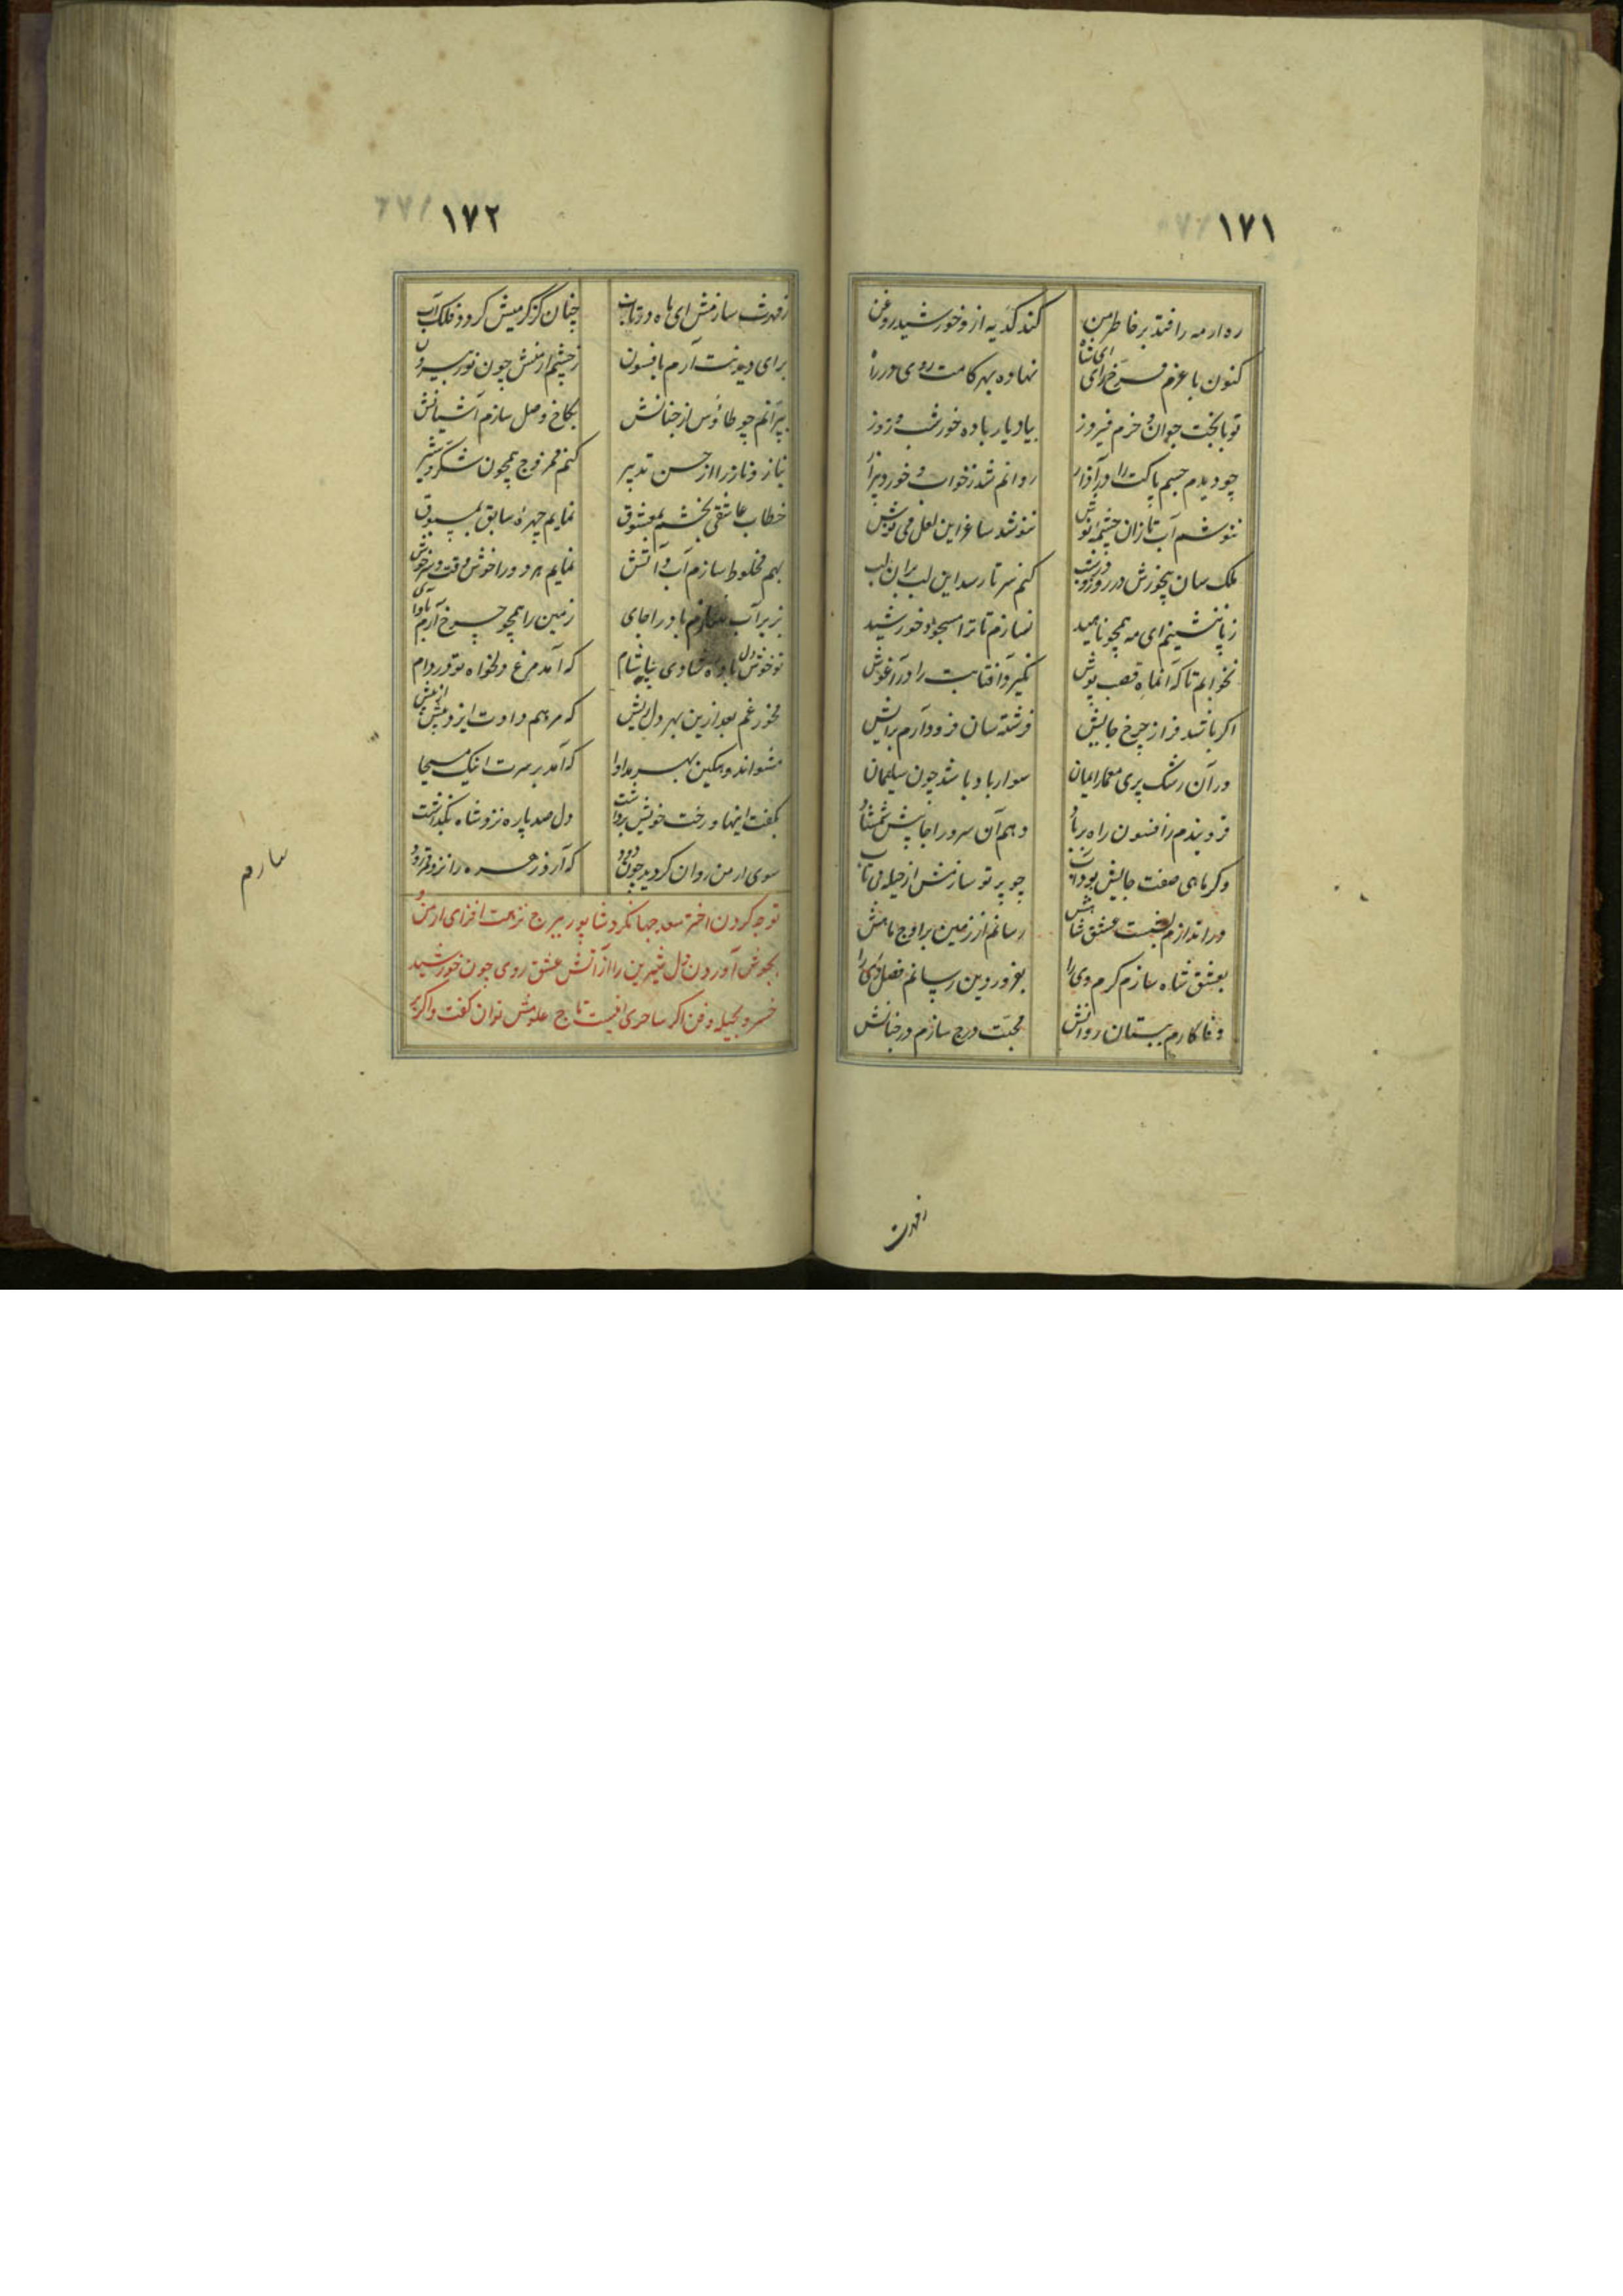 ۱۷۱
ره ار مه را فتد بر خاطر من کند کدیه ازو خورشید روغن
کنون با عزم فرخ رای ای شاه نهاده بهر کامت روی در راه
تو با بخت جوان و خرم فیروز بیاد یار باده خور شب و روز
چو دیدم جسم پاکت را در آزار روانم شد ز خواب و خورد بیزار
ننوشم آب تا زان چشمه نوش ننوشد ساغر این لعل می نوش
ملک سان هیچ خورش در روز و در شب کنم سر تا رسد این لب بران لب
ز پا ننشینم ای مه همچو ناهید نسازم تا ترا مسجود خورشید
نخوابم تا که آنماه قصب پوش نگیرد آفتابت را در آغوش
اگر باشد فراز چرخ جایش فرشته سان فرود آرم برایش
ور آن رشک پری معمار ایمان سوار باد باشد چون سلیمان
فرو بندم ز افسون راه بر باد دهم آن سرو را جا پیش شمشاد
وگر ماهی صفت جایش بود آب چو پرتو سازمش از حیله بی تاب
در اندازم بشست عشق شاهش رسانم از زمین بر اوج ماهش
بعشق شاه سازم گرم وی را بفروردین رسانم فصل دی را
وفا کارم ببستان روانش محبت درج سازم در جنانش
ز مهرت
۱۷۲
ز مهرت سازمش ای ماه در تاب چنان کز گرمیش گردد فلک آب
برای دیدنت آرم بافسون ز چشم ارمنش چون نور بیرون
بپرانم چو طاؤس از جنانش بکاخ وصل سازم آشیانش
نیاز و ناز را از حسن تدبیر کنم ممزوج همچون شکر و شیر
خطاب عاشقی بخشم بمعشوق نمایم چهره سابق بمسبوق
بهم مخلوط سازم آب و آتش نمایم هر دو را خوش وقت و سرخوش
بزیر آب سازم باد را جای زمین را همچو چرخ آرم
تو خوش دل باده شادی بیاشام که آمد مرغ دلخواه تو در دام
مخور غم بعد ازین بهر دل ریش که مرهم دادت ایزد بیش از نیش
مشو اندوهگین بهر مداوا که آمد بر سرت اینک مسیحا
بگفت اینها و رخت خویش برداشت دل صد پاره نزد شاه بگذاشت
سوی ارمن روان گردید چون دود که آرد زهره را نزد قمر زود
سازم
توجه کردن اختر سعد جهانگرد شاپور ببرج نزهت افزای ارمن و
بجوش آوردن دل شیرین را از آتش عشق روی چون خورشید
خسرو بحیله و فن اگر ساحری افیست تاج علومش توان گفت واگر